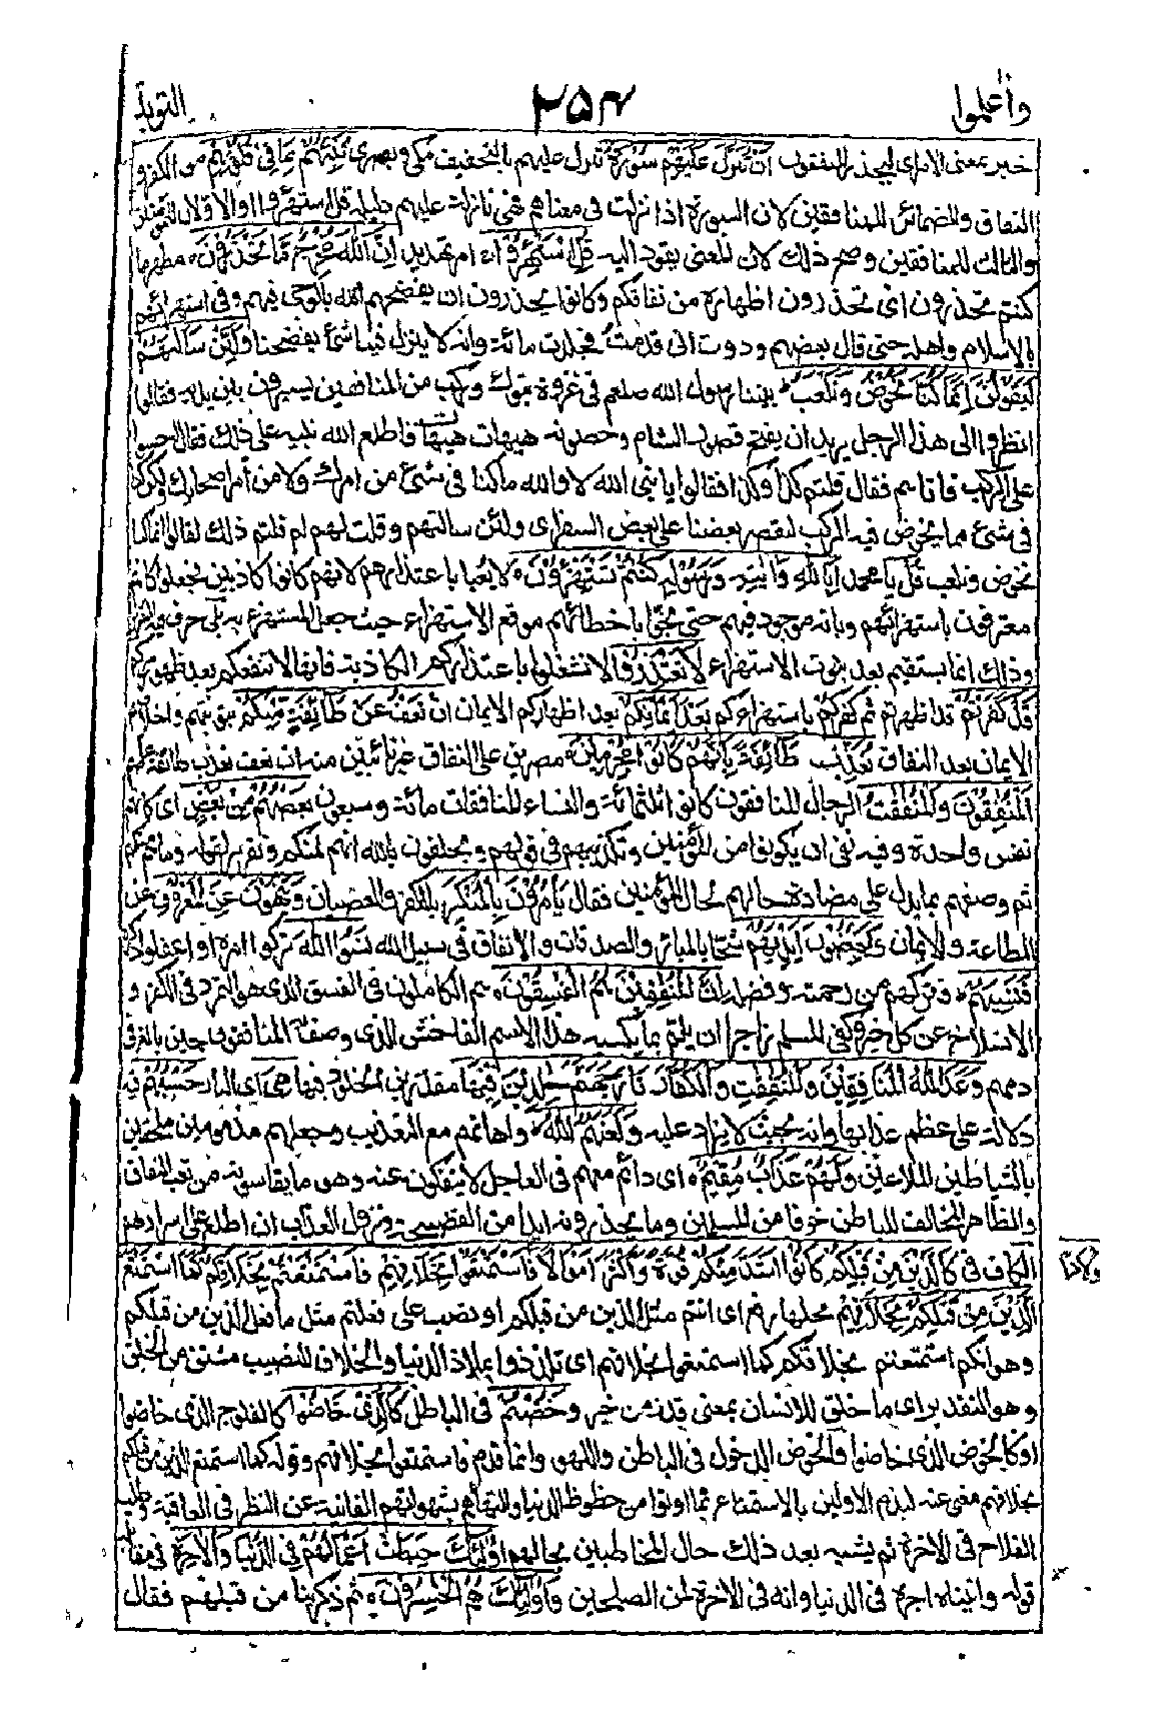 واعلموا ٢٥٤ التوبة
خبر بمعنى الامر اى ليحذر المنفقون اَنْ تُنَزَّلَ عَلَيْهِمْ سُوْرَةٌ تنزل عليهم بالتخفيف مكى وبصرى تُنَبِّئُهُمْ بِمَا فِىْ قُلُوْبِهِمْ من الكفر و
النفاق والضمائر للمنافقين لان السورة اذا نزلت فى معناهم فهى نازلة عليهم دليله قل استهزءوا او الاولان للمؤمنين
والثالث للمنافقين وصح ذلك لان المعنى يقود اليه قُلِ اسْتَهْزِءُوْا امر تهديد اِنَّ اللّٰهَ مُخْرِجٌ مَّا تَحْذَرُوْنَ مظهر ما
كنتم تحذرون اى تحذرون اظهاره من نفاقكم وكانوا يحذرون ان يفضحهم الله بالوحى فيهم وفى استهزائهم
بالاسلام واهله حتى قال بعضهم وددت انى قدمت فجلدت مائة وانه لا ينزل فينا شئ يفضحنا وَلَئِنْ سَاَلْتَهُمْ
لَيَقُوْلُنَّ اِنَّمَا كُنَّا نَخُوْضُ وَنَلْعَبُ بينا رسول الله صلعم فى غزوة تبوك وركب من المنافقين يسيرون بين يديه فقالوا
انظروا الى هذا الرجل يريد ان يفتح قصور الشام وحصونه هيهات هيهات فاطلع الله نبيه على ذلك فقال احبسوا
على الركب فاتاهم فقال قلتم كذا وكذا فقالوا يا نبى الله لا والله ما كنا فى شئ من امرك ولا من أمر اصحابك ولكن كنا
فى شئ مما يخوض فيه الركب ليقصر بعضنا على بعض السفر اى ولئن سالتهم وقلت لهم لم قلتم ذلك لقالوا انما كنا
نخوض ونلعب قُلْ يا محمد اَبِاللّٰهِ وَاٰيٰتِهٖ وَرَسُوْلِهٖ كُنْتُمْ تَسْتَهْزِءُوْنَ لا يعبا باعتذارهم لانهم كانوا كاذبين فجعلوا كانهم
معترفون باستهزائهم وبانه موجود فيهم حتى وبخوا باخطائهم موقع الاستهزاء حيث جعل المستهزء به يلى حرف التقرير
وذلك انما يستقيم بعد ثبوت الاستهزاء لَا تَعْتَذِرُوْا لا تشتغلوا باعتذاركم الكاذبة فانها لا تنفعكم بعد ظهور سركم
قَدْ كَفَرْتُمْ قد اظهرتم كفركم باستهزاءكم بَعْدَ اِيْمَانِكُمْ بعد اظهاركم الايمان اِنْ نَعْفُ عَنْ طَائِفَةٍ مِّنْكُمْ بتوبتهم واخلاصهم
الايمان بعد النفاق نُعَذِّبْ طَائِفَةً بِاَنَّهُمْ كَانُوْا مُجْرِمِيْنَ مصرين على النفاق غير تائبين منه ان يعف تعذب طائفة غيرهم
اَلْمُنٰفِقُوْنَ وَالْمُنٰفِقٰتُ الرجال المنافقون كانوا ثلثمائة والنساء المنافقات مائة وسبعون بَعْضُهُمْ مِّنْ بَعْضٍ اى كانهم
نفس واحدة وفيه نفى ان يكونوا من المؤمنين وتكذيبهم فى قولهم ويحلفون بالله انهم لمنكم وتقرير لقوله وما هم منكم
ثم وصفهم بما يدل على مضادة حالهم لحال المؤمنين فقال يَاْمُرُوْنَ بِالْمُنْكَرِ بالكفر والعصيان وَيَنْهَوْنَ عَنِ الْمَعْرُوْفِ عن
الطاعة والايمان وَيَقْبِضُوْنَ اَيْدِيَهُمْ شحا بالمبار والصدقات والانفاق فى سبيل الله نَسُوا اللّٰهَ تركوا امره او اغفلوا ذكره
فَنَسِيَهُمْ فتركهم من رحمته وفضله اِنَّ الْمُنٰفِقِيْنَ هُمُ الْفٰسِقُوْنَ هم الكاملون فى الفسق الذى هو التمرد فى الكفر و
الانسلاخ عن كل خير وكفى المسلم زاجرا ان يلم بما يكسبه هذا الاسم الفاحش الذى وصف المنافقون حين بالغ فى
ذمهم وَعَدَ اللّٰهُ الْمُنٰفِقِيْنَ وَالْمُنٰفِقٰتِ وَالْكُفَّارَ نَارَ جَهَنَّمَ خٰلِدِيْنَ فِيْهَا مقدرين الخلود فيها هِىَ اى النار حَسْبُهُمْ فيه
دلالة على عظم عذابها وانه بحيث لا يزاد عليه وَلَعَنَهُمُ اللّٰهُ واهانهم مع التعذيب وجعلهم مذمومين ملحقين
بالشياطين الملاعين وَلَهُمْ عَذَابٌ مُّقِيْمٌ اى دائم معهم فى العاجل لا ينفكون عنه وهو ما يقاسونه من تعب النفاق
والظاهر المخالف للباطن خوفا من المسلمين وما يحذرونه ابدا من الفضيحة ونزول العذاب ان اطلع على اسرارهم
الكاف فى كَالَّذِيْنَ مِنْ قَبْلِكُمْ كَانُوْا اَشَدَّ مِنْكُمْ قُوَّةً وَّاَكْثَرَ اَمْوَالًا فَاسْتَمْتَعُوْا بِخَلَاقِهِمْ فَاسْتَمْتَعْتُمْ بِخَلَاقِكُمْ كَمَا اسْتَمْتَعَ
الَّذِيْنَ مِنْ قَبْلِكُمْ بِخَلَاقِهِمْ محلها رفع اى انتم مثل الذين من قبلكم او نصب على فعلتم مثل ما فعل الذين من قبلكم
وهو انكم استمتعتم بخلاقكم كما استمتعوا بخلاقهم اى تلذذوا بملاذ الدنيا والخلاق النصيب مشتق من الخلق
وهو التقدير اى ما خلق للانسان بمعنى قدر من خير وَخُضْتُمْ فى الباطل كَالَّذِىْ خَاضُوْا كالفوج الذى خاضوا
او كالخوض الذى خاضوا والخوض الدخول فى الباطن واللهو وانما قدم فاستمتعوا بخلاقهم وقوله كما استمتع الذين من قبلكم
بخلاقهم مغن عنه ليذم الاولين بالاستمتاع بما اوتوا من حظوظ الدنيا والتهائهم بشهواتهم الفانية عن النظر فى العاقبة وطلب
الفلاح فى الاخرة ثم يشبه بعد ذلك حال المخاطبين بحالهم اُولٰئِكَ حَبِطَتْ اَعْمَالُهُمْ فِى الدُّنْيَا وَالْاٰخِرَةِ فى مقابلة
قوله واتيناه اجره فى الدنيا وانه فى الاخرة لمن الصلحين وَاُولٰئِكَ هُمُ الْخٰسِرُوْنَ ثم ذكر نبا من قبلهم فقال